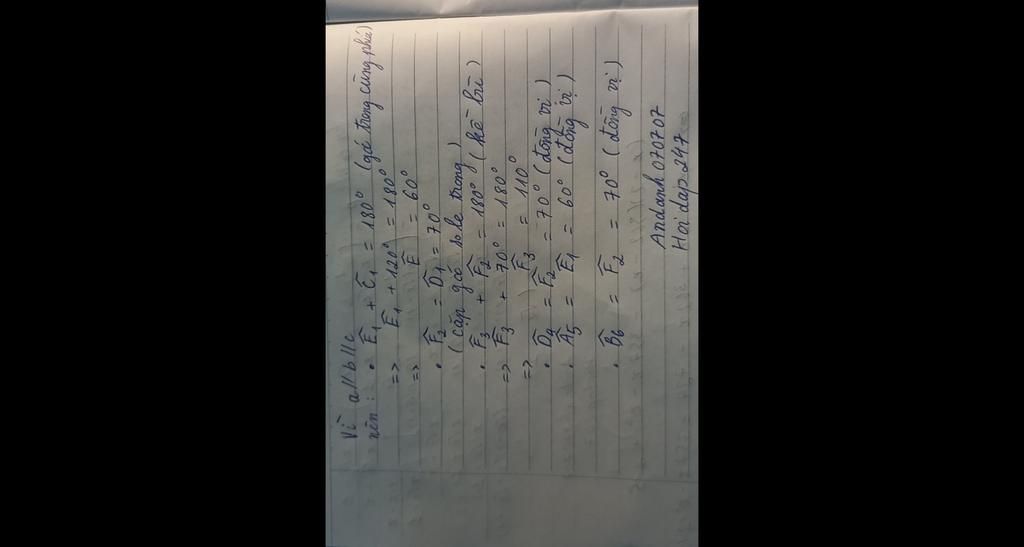 Vì a//b//c
nên : • Ê₁ + Ĉ₁ = 180° (góc trong cùng phía)
=> Ê₁ + 120° = 180°
=> Ê = 60°
• F̂₂ = D̂₁ = 70°
(cặp góc so le trong)
• F̂₃ + F̂₂ = 180° (kề bù)
=> F̂₃ + 70° = 180°
=> F̂₃ = 110°
• D̂₄ = F̂₂ = 70° (đồng vị)
• Â₅ = Ê₁ = 60° (đồng vị)
• B̂₆ = F̂₂ = 70° (đồng vị)
Andanh070707
Hoidap247